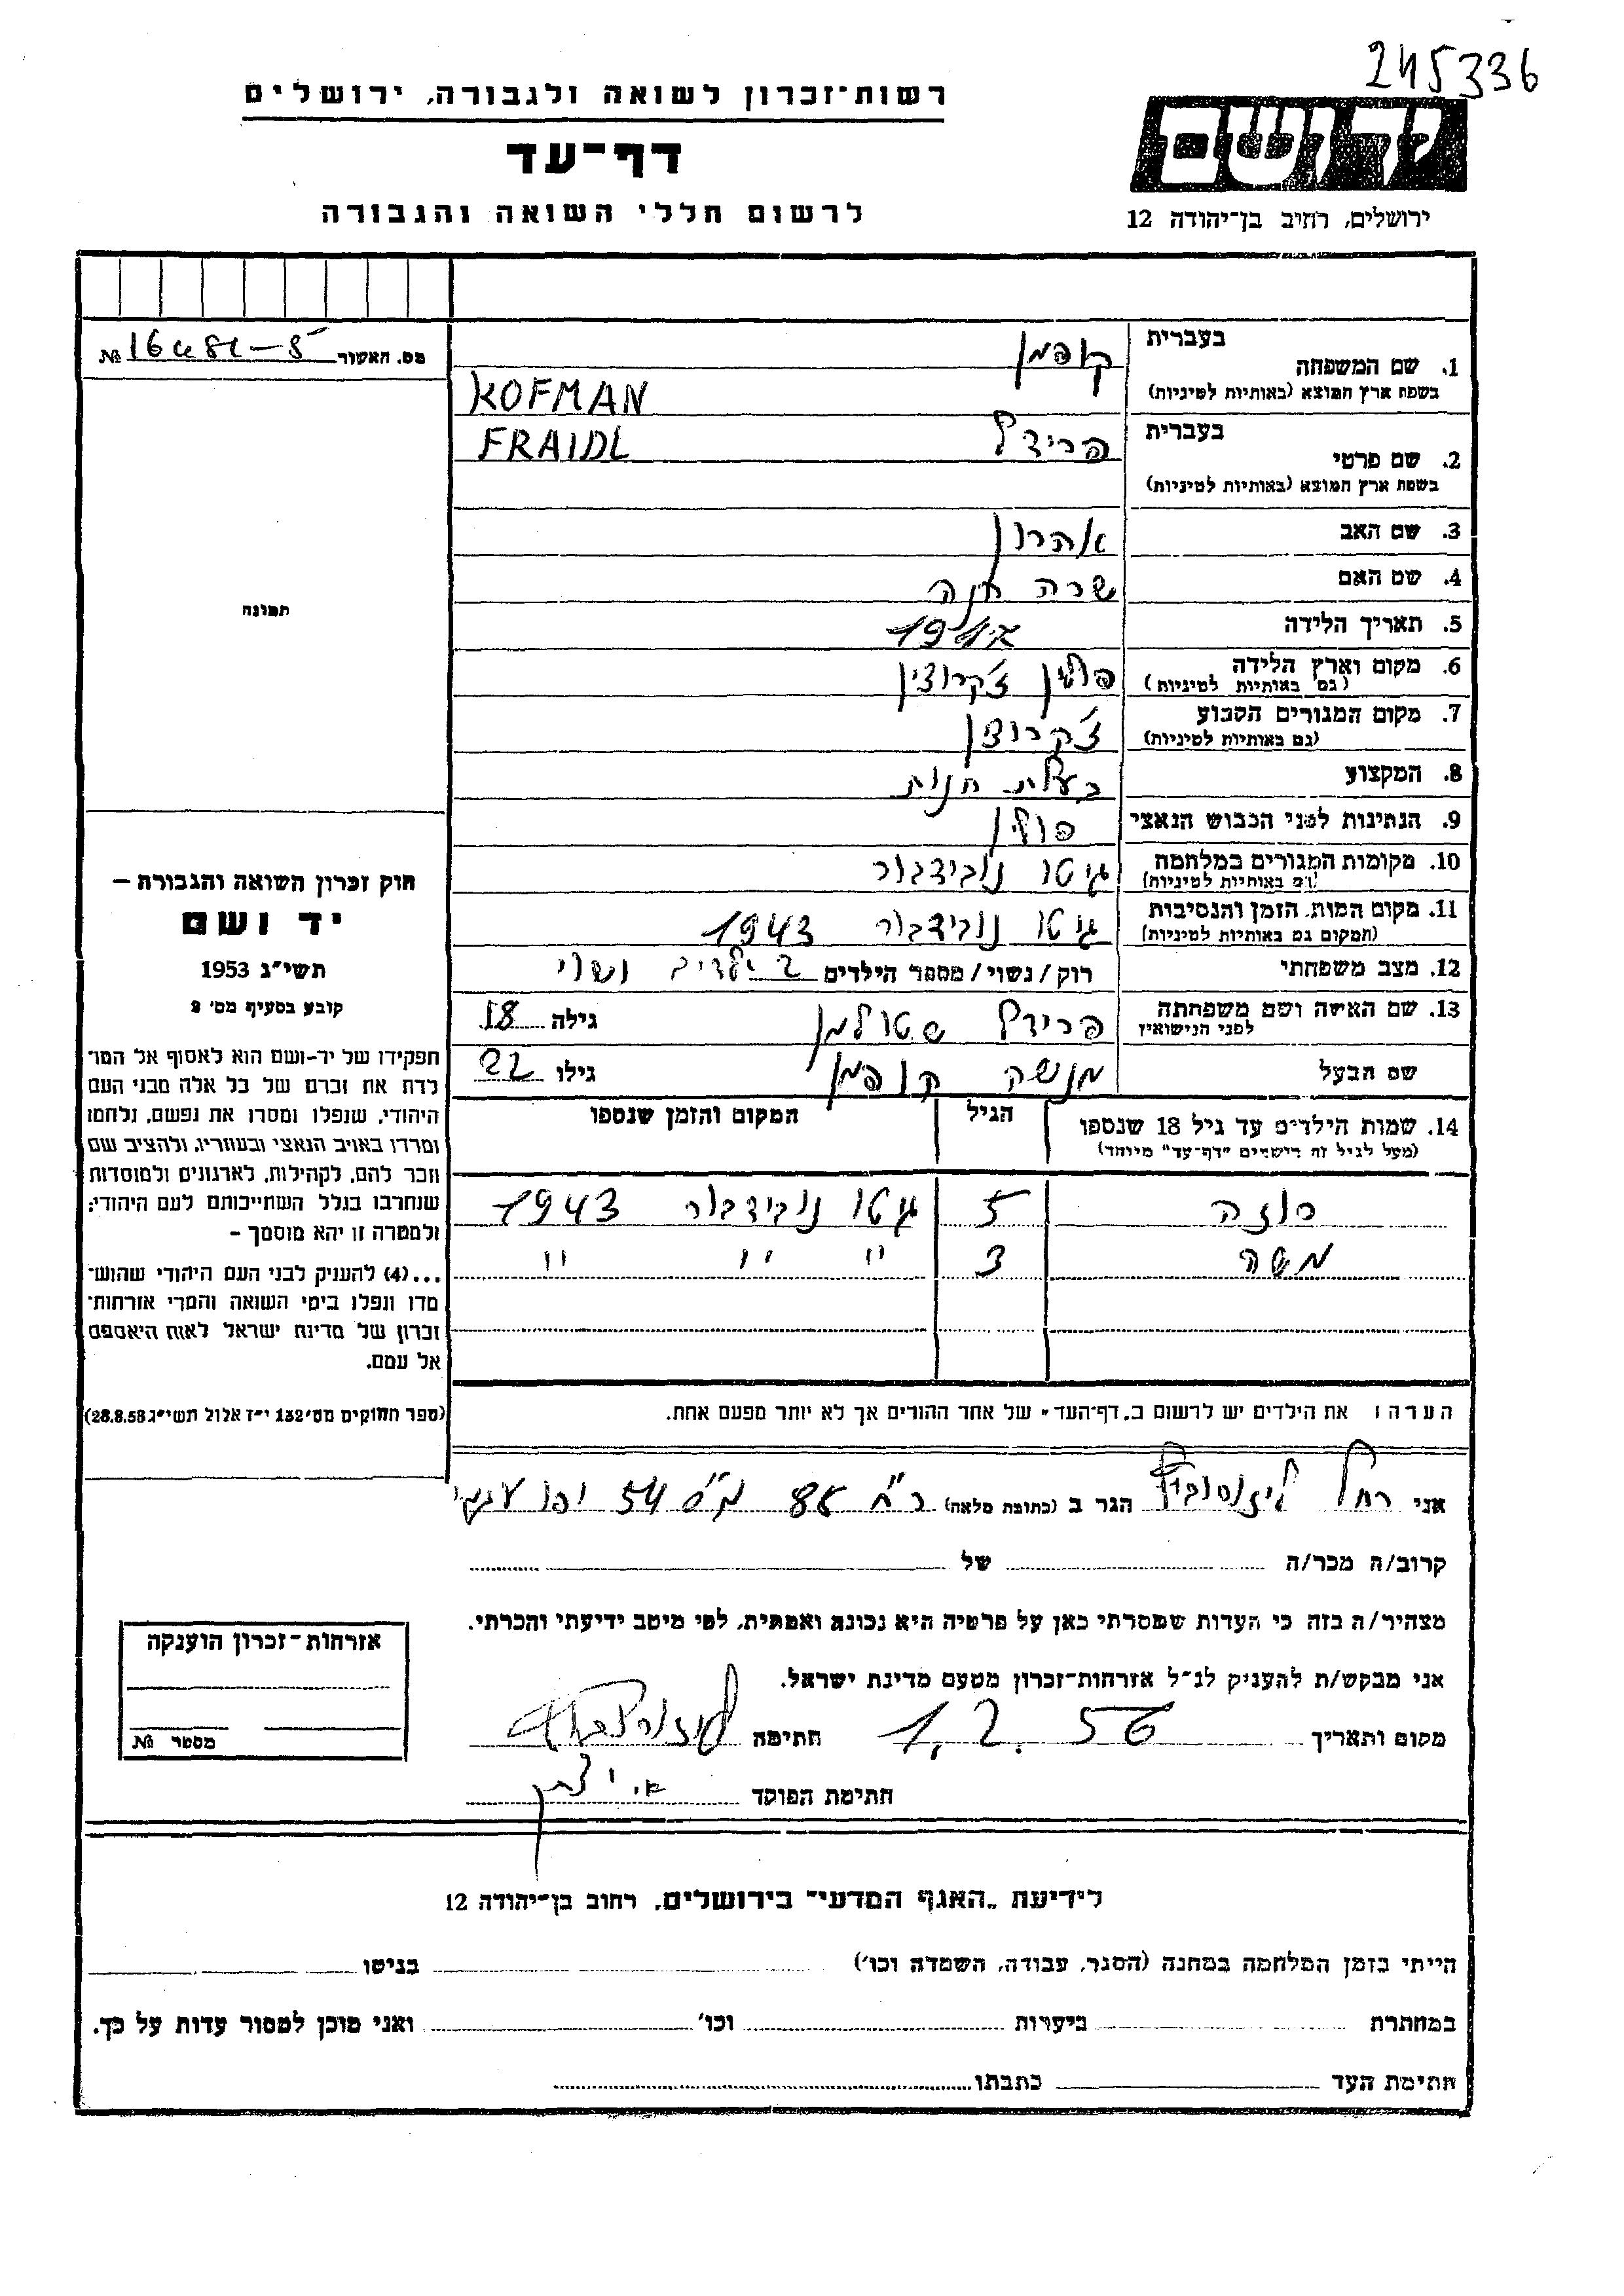 245336
רשות־זכרון לשואה ולגבורה, ירושלים
דף־עד
לרשום חללי השואה והגבורה
יד ושם
ירושלים, רחוב בן־יהודה 12
מס. האשור №
1. שם המשפחה בעברית קופמן
בשפת ארץ המוצא (באותיות לטיניות) KOFMAN
2. שם פרטי בעברית פרידל FRAIDL
בשפת ארץ המוצא (באותיות לטיניות)
3. שם האב אהרון
4. שם האם שרה חנה
5. תאריך הלידה
6. מקום וארץ הלידה פולין צ'קרוצין
(גם באותיות לטיניות)
7. מקום המגורים הקבוע צ'קרוצין
(גם באותיות לטיניות)
8. המקצוע בעלת חנות
9. הנתינות לפני הכבוש הנאצי פולין
10. מקומות המגורים במלחמה גיטו נובידבור
(גם באותיות לטיניות)
11. מקום המות, הזמן והנסיבות גיטו נובידבור 1943
(המקום גם באותיות לטיניות)
12. מצב משפחתי רוק/נשוי/מספר הילדים 2 ילדים נשוי
13. שם האישה ושם משפחתה פרידל שטולמן גילה 18
לפני הנישואין
שם הבעל מנשה קופמן גילו 22
14. שמות הילדים עד גיל 18 שנספו הגיל המקום והזמן שנספו
(מעל לגיל זה רושמים "דף־עד" מיוחד)
רוזה 5 גיטו נובידבור 1943
משה 3 " " "
הערה: את הילדים יש לרשום ב„דף־העד" של אחד ההורים אך לא יותר מפעם אחת.
תמונה
חוק זכרון השואה והגבורה —
יד ושם
תשי"ג 1953
קובע בסעיף מס' 2
תפקידו של יד-ושם הוא לאסוף אל המו־
לדת את זכרם של כל אלה מבני העם
היהודי, שנפלו ומסרו את נפשם, נלחמו
ומרדו באויב הנאצי ובעוזריו, ולהציב שם
וזכר להם, לקהילות, לארגונים ולמוסדות
שנחרבו בגלל השתייכותם לעם היהודי;
ולמטרה זו יהא מוסמך –
...(4) להעניק לבני העם היהודי שהוש־
מדו ונפלו בימי השואה והמרי אזרחות־
זכרון של מדינת ישראל לאות היאספם
אל עמם.
(ספר החוקים מס' 132 י"ז אלול תשי"ג 28.8.53)
אני רחל הגר ב (כתובת מלאה) 54 יפו
קרוב/ה מכר/ה של
מצהיר/ה בזה כי העדות שמסרתי כאן על פרטיה היא נכונה ואמתית, לפי מיטב ידיעתי והכרתי.
אני מבקש/ת להעניק לנ"ל אזרחות־זכרון מטעם מדינת ישראל.
מקום ותאריך 1.2.56 חתימה
חתימת הפוקד
אזרחות־זכרון הוענקה
מספר №
לידיעת „האגף המדעי" בירושלים, רחוב בן־יהודה 12
הייתי בזמן המלחמה במחנה (הסגר, עבודה, השמדה וכו') בגיטו
במחתרת ביערות וכו' ואני מוכן למסור עדות על כך.
חתימת העד כתבתו